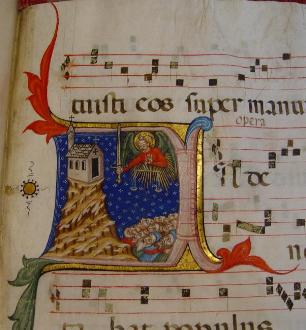 tuisti eos super manuu
opera
il de
n
hat populus